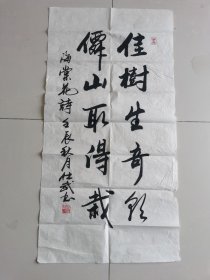 佳樹生奇彩
僊山取得栽
海棠花詩壬辰秋月仕武書